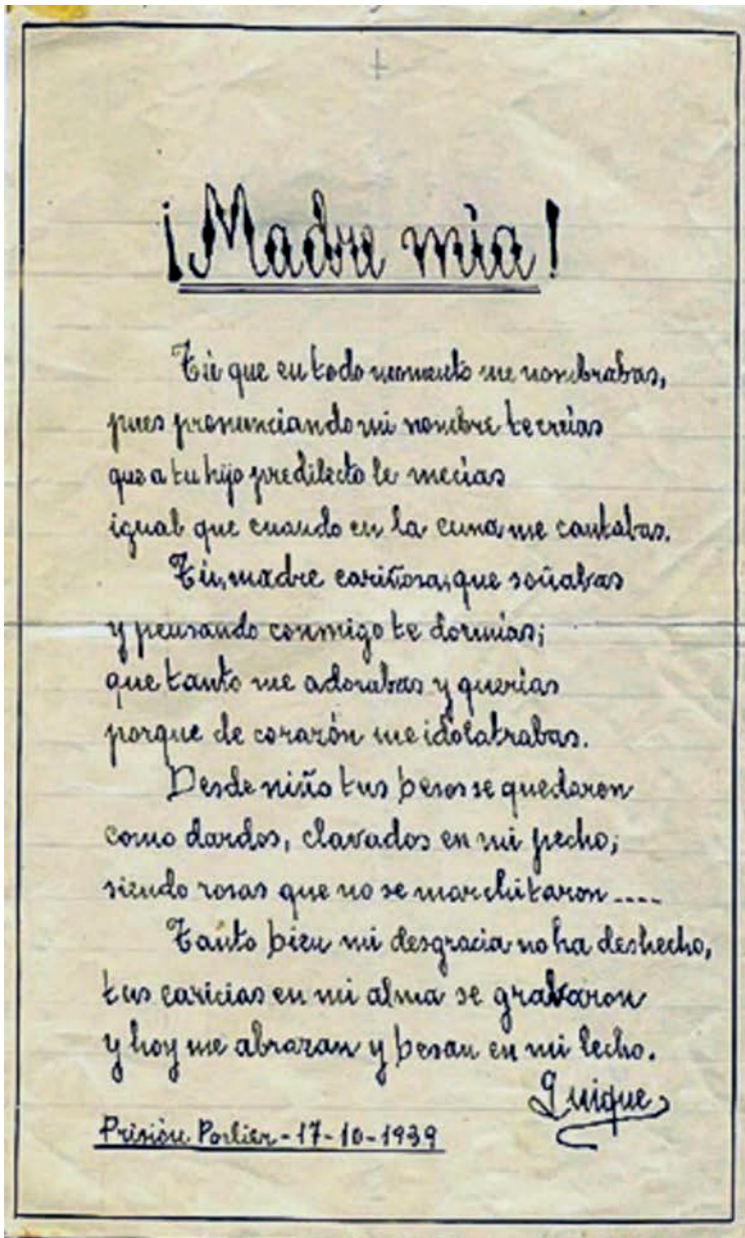 ¡Madre mía!
Tú que en todo momento me nombrabas,
pues pronunciando mi nombre te creías
que a tu hijo predilecto le mecías
igual que cuando en la cuna me cantabas.
Tú, madre cariñosa, que soñabas
y pensando conmigo te dormías;
que tanto me adorabas y querías
porque de corazón me idolatrabas.
Desde niño tus besos se quedaron
como dardos, clavados en mi pecho;
siendo rosas que no se marchitaron....
Tanto bien mi desgracia no ha deshecho,
tus caricias en mi alma se grabaron
y hoy me abrazan y besan en mi lecho.
Quique
Prisión Porlier-17-10-1939